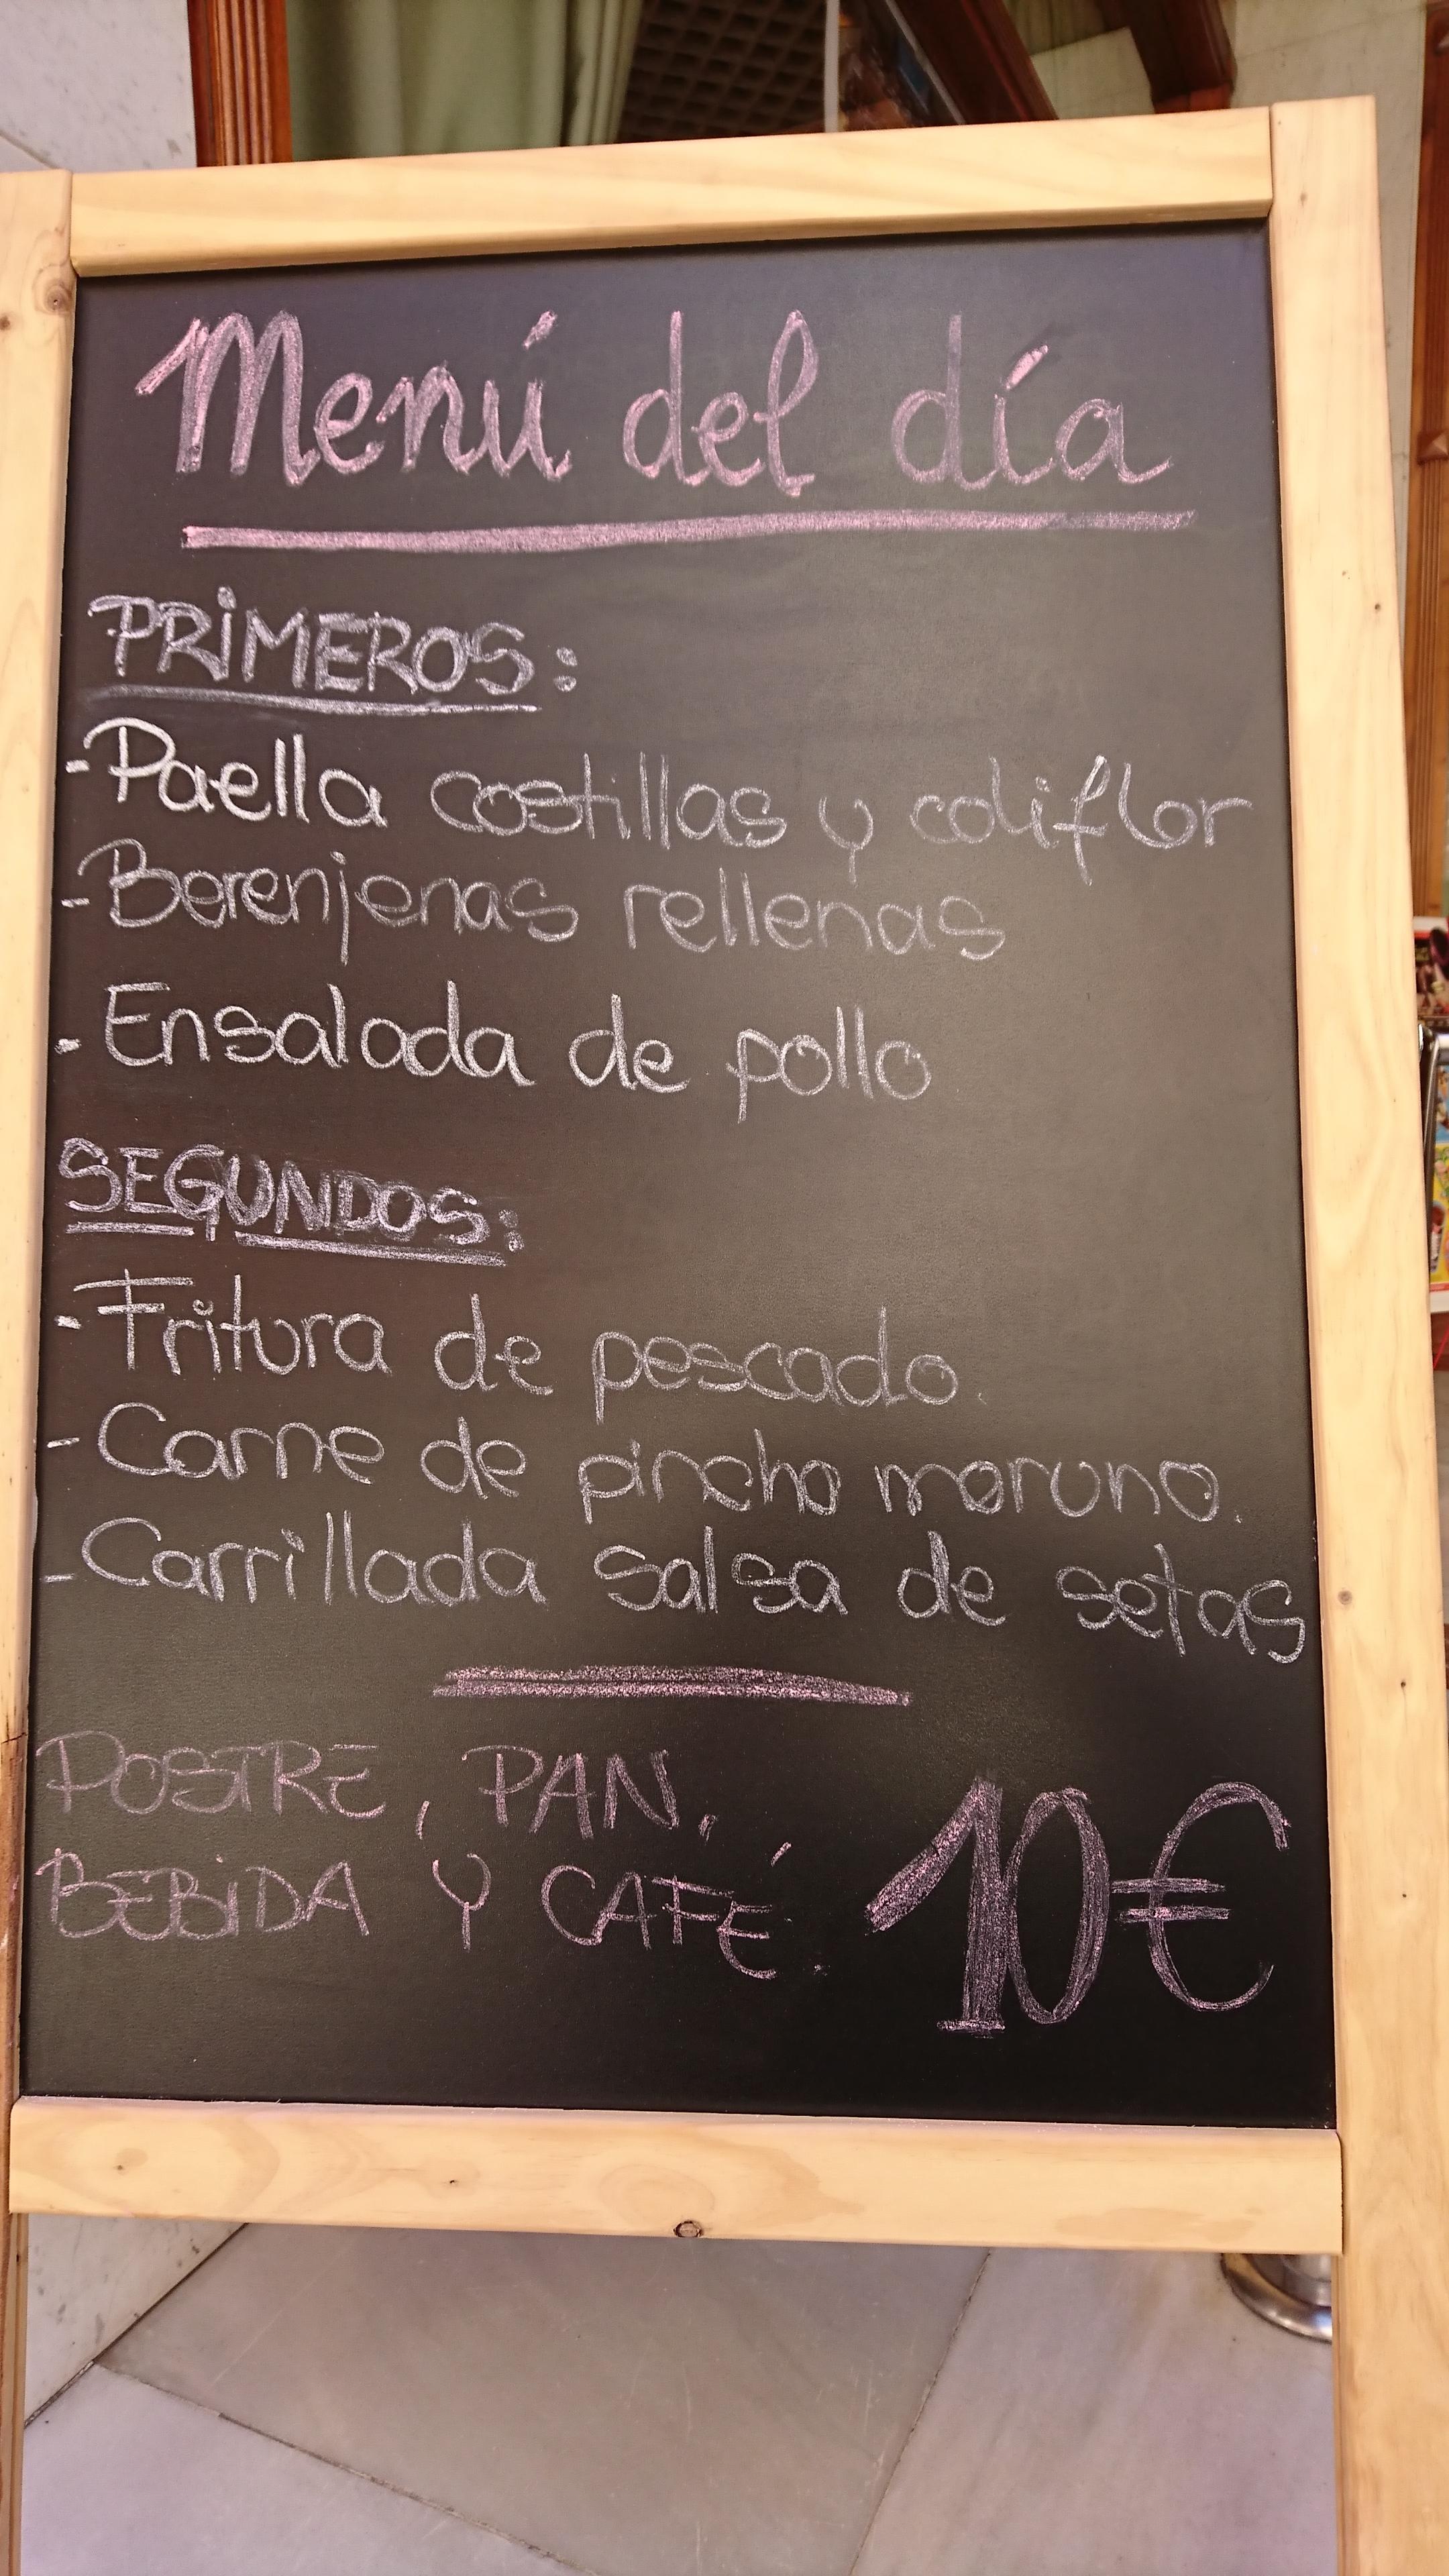 Menú del día
PRIMEROS:
-Paella costillas y coliflor
-Berenjenas rellenas
-Ensalada de pollo
SEGUNDOS:
-Fritura de pescado.
-Carne de pincho moruno.
-Carrillada salsa de setas
POSTRE, PAN,
BEBIDA Y CAFÉ.
10€